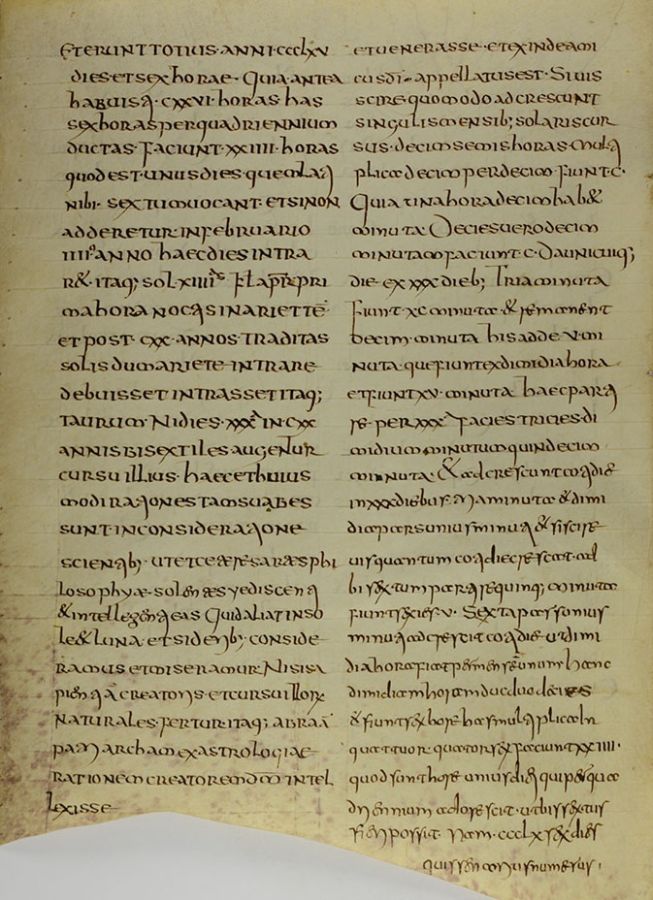 ET ERUNT TOTIUS · ANNI · CCCLXV
DIES · ET SEX HORAE · QUIA · ANTEA
HABUIS · CXXVI · HORAS · HAS
SEX HORAS PER QUADRIENNIUM
DUCTAS · FACIUNT · XXIIII · HORAS
QUOD EST · UNUS DIES · QUEM LA
NIBI · SEXTUM UOCANT · ET SI NON
ADDERETUR IN FEBRUARIO
IIII ANNO HAEC DIES INTRA
R& · ITAQ; SOL · XIIII PRI
MA HORA NOC IS IN ARIETE
ET POST · CXX · ANNOS · TRADITAS
SOLIS DUM ARIETE INTRARE
DEBUISSET INTRASSET ITAQ;
TAURUM · NI DIES · XXX IN CXX
ANNIS BISEXTILES AUGENTUR
CURSU ILLIUS · HAEC ET HUIUS
MODI RATIONES TAM SUABES
SUNT IN CONSIDERATIONE
SCIEN B; · UT ET CETERAS ARTES PHI
LOSOPHYAE · DISCEN
& INTELLEG EAS QUID ALIAT IN SO
LE & LUNA · ET SIDERIB; CONSIDE
RAMUS ET MIRAMUR · NISI SA
PIEN A CREATORIS · ET CURSU ILLOR
NATURALES · FERTUR ITAQ; ABRAA
PATRIARCHAM EX ASTROLOGIAE
RATIONEM CREATOREM DM INTEL
LEXISSE
ET UENERASSE · ET EXINDE AMI
CUS DI · APPELLATUS EST · SI UIS
SCIRE QUOMODO ADCRESCUNT
SINGULIS MENSIB; SOLARIS CUR
SUS · DECIM SEMIS HORAS · MUL
PLICA DECIM PER DECIM · FIUNT · C ·
QUIA UNA HORA DECIM HAB&
MINUTA · DECIES UERO DECIM
MINUTA FACIUNT · C · DA UNICUIQ;
DIE · EX XXX DIEB; TRIA MINUTA
FIUNT · XC MINUTA & REMANENT
DECIM MINUTA HIS ADDE · V · MI
NUTA · QUE FIUNT EX DIMIDIA HORA
ET FIUNT XV · MINUTA HAEC PAR
RE · PER XXX FACIES TRICIES · DI
MIDIUM MINUTUM QUINDECIM
MINUTA · & ADCRESCUNT COTIDIE
IN XXX DIEBUS · & DIMI
DIA PARS UNIUS MINUTI & SI SCIRE
UIS QUANTUM COTIDIE CRESCAT AD
BISSEXTUM PARTIRE QUINQ; MINUTA
FIUNT SEXIES · V · SEXTA PARS UNIUS
MINUTI ADCRESCIT COTIDIE · UT DIMI
DIA HORA FIAT PER MENSEM UNUM HANC
DIMIDIAM HORAM DUC DUODECIES
& FIUNT SEX HORE HAS MULTIPLICA IN
QUATTUOR · QUATER SEX FACIUNT XXIIII ·
QUOD SUNT HORE UNIUS DIEI QUI PER QUA
DRIENNIUM ADCRESCIT · UT BISSEXTUS
FIERI POSSIT · NAM · CCCLX SEX DIES